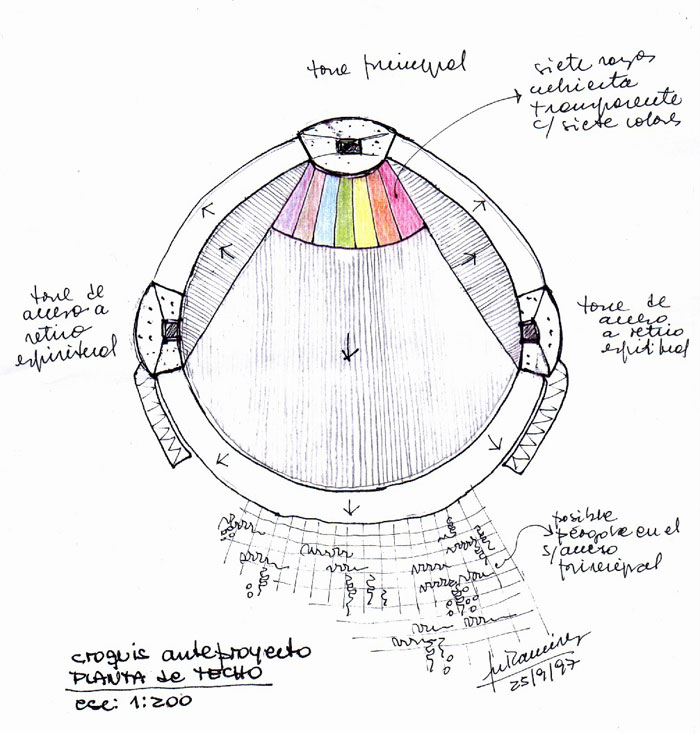 torre principal
siete rayos
cubierta
transparente
c/ siete colores
torre de
acceso a
retiro
espiritual
torre de
acceso
a retiro
espiritual
posible
pérgola en el
s/acceso
principal
croquis anteproyecto
PLANTA de TECHO
esc: 1:200
Ramirez
25/9/97